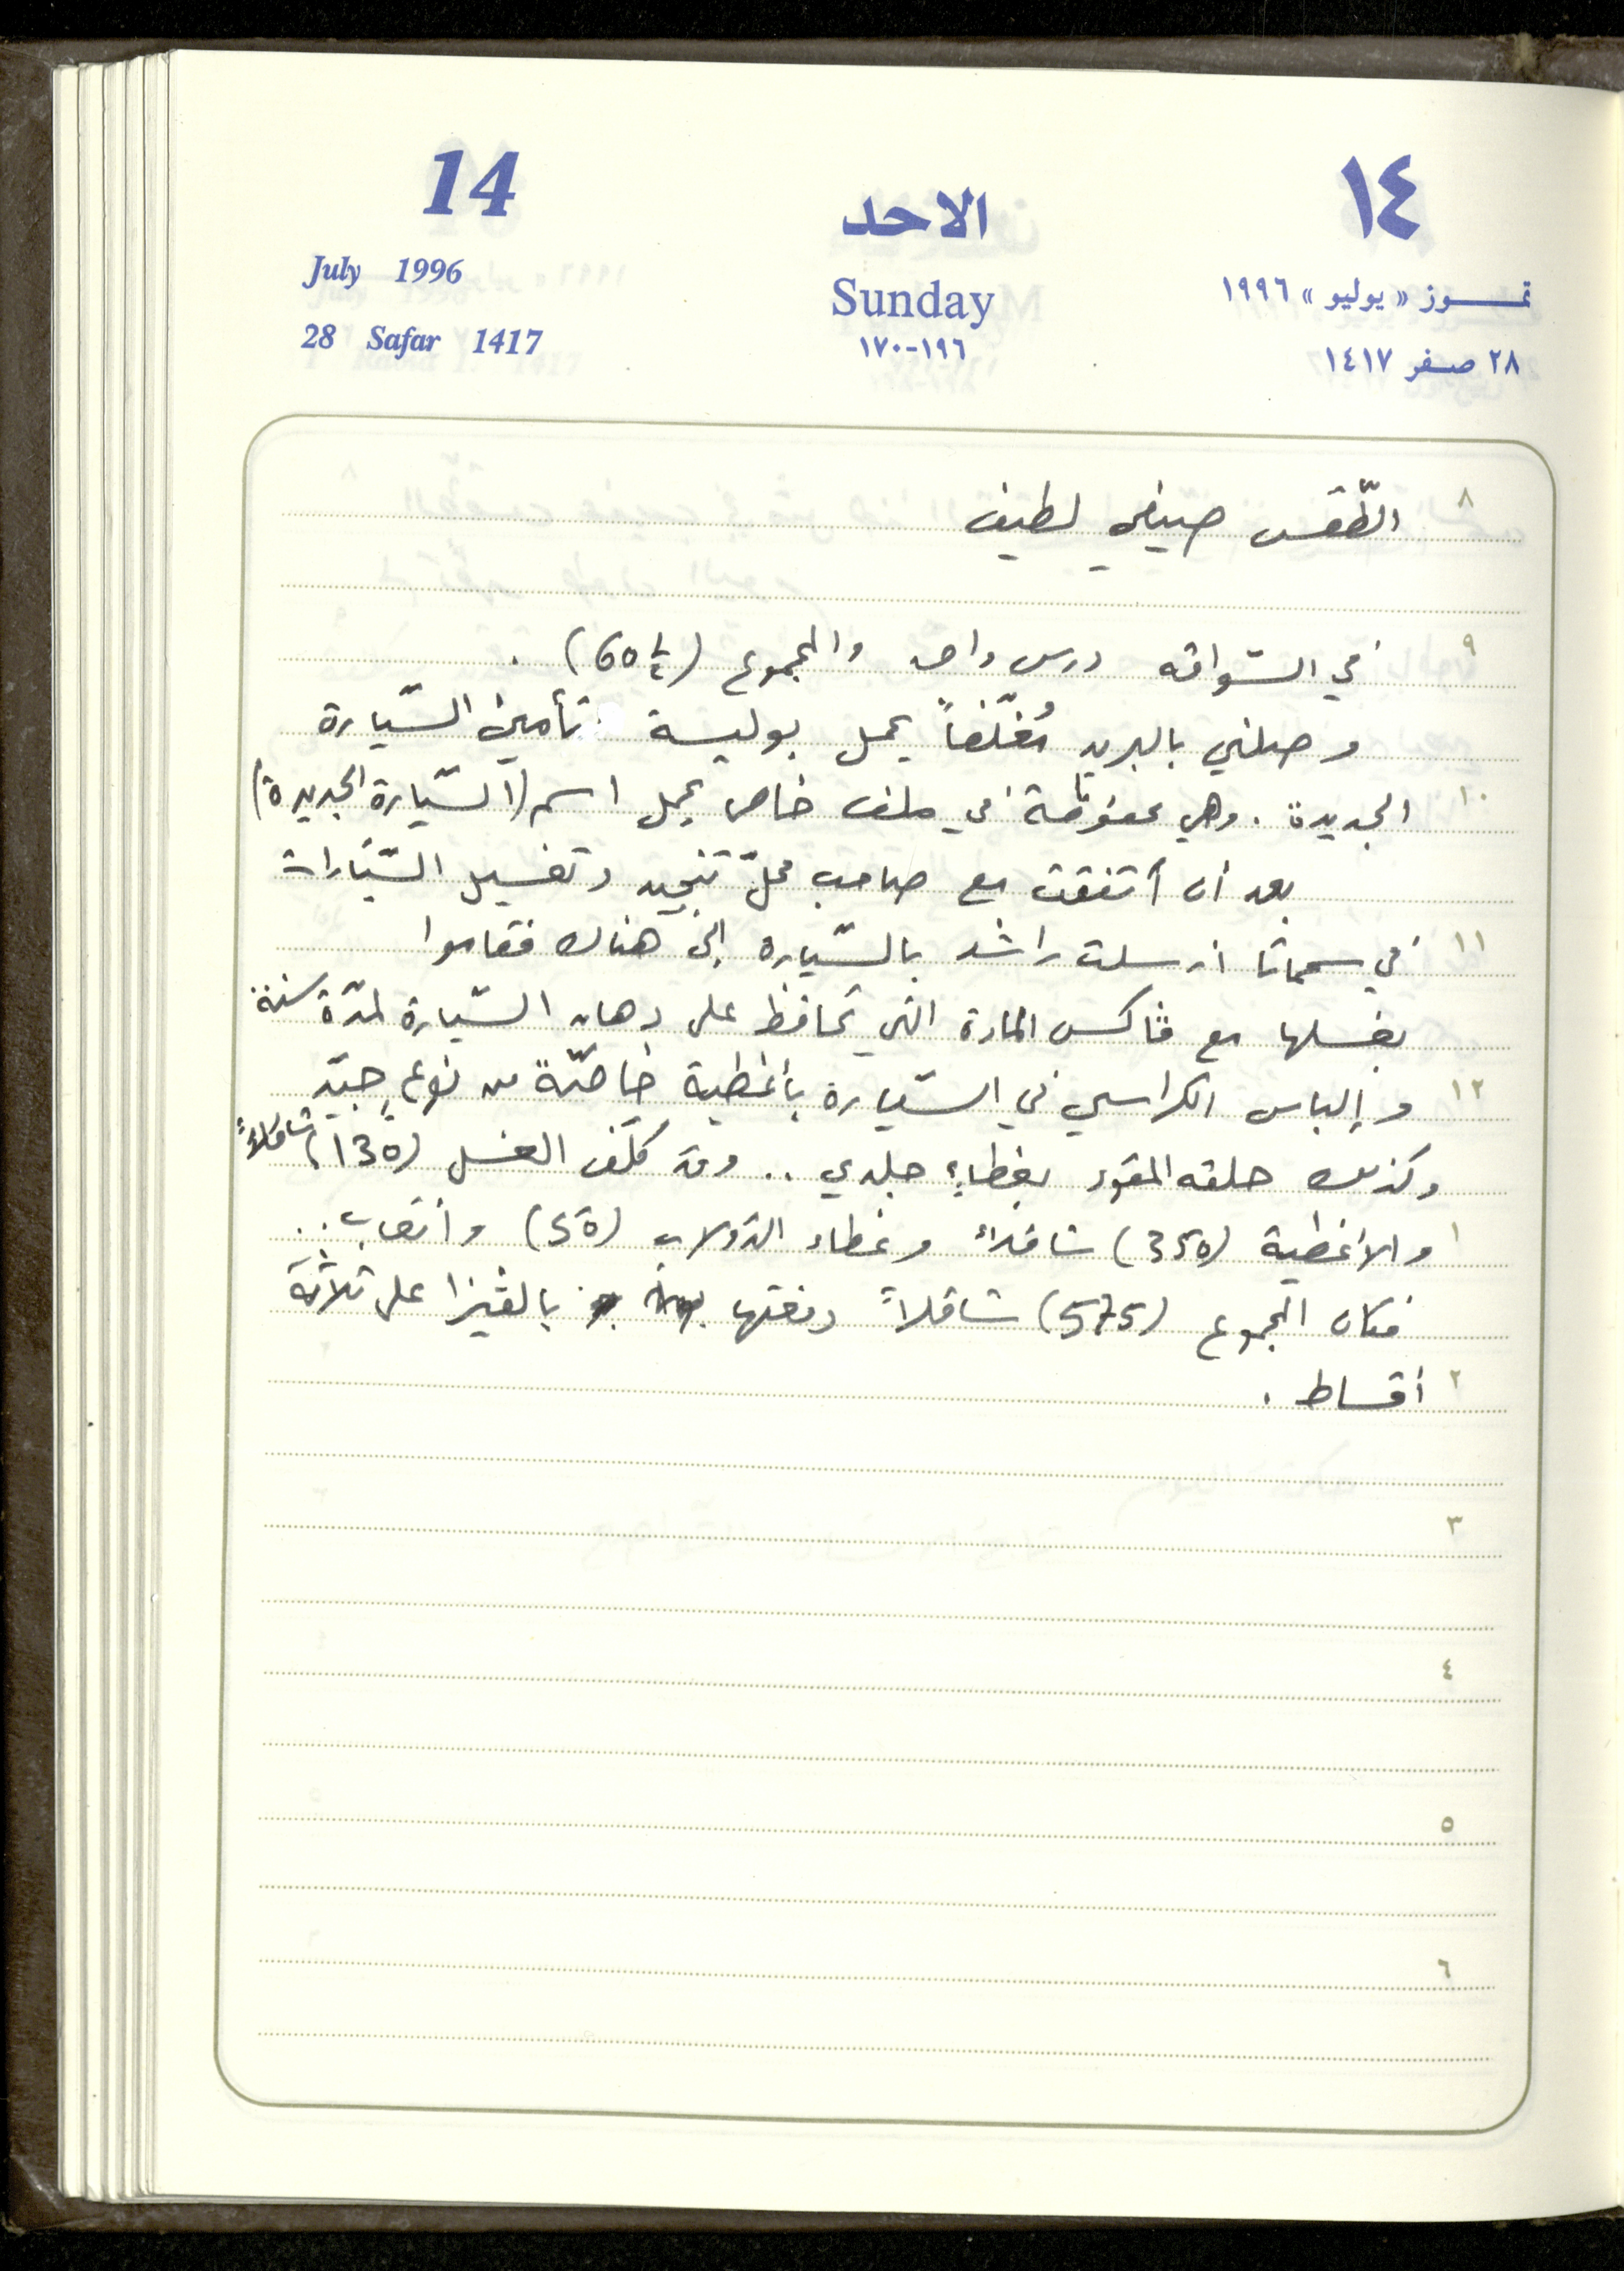 14
July 1996
28 Safar 1417
الاحد
Sunday
١٩٦-١٧٠
١٤
تمـوز «يوليو» ١٩٩٦
٢٨ صفر ١٤١٧
٨ الطّقس صيفي لطيف
٩ في السّواقه درس واحد والمجموع (60½) .
وصلني بالبريد مُغلّفاً يحمل بوليسة تأمين السّيارة
١٠ الجديدة . وهي محفوظة في ملف خاص يحمل اسم (السّيارة الجديدة)
بعد أن أتفقت مع صاحب محلّ تنجيد وتغسيل السّيّارات
١١ في أرسلت راشد بالسّيارة إلى هناك فقاموا
بغسلها مع ڤاكس المادة التي تحافظ على دهان السّيارة لمدّة سنة
١٢ وإلباس الكراسي في السّيارة بأغطية خاصّة من نوعٍ جيّدٍ
وكذلك حلقه المقود بغطاءٍ جلدي .. وقد كلّف الغسل (130) شاقلاً
١ والأغطية (350) شاقلاً وغطاء الدّولاب (50) وأتعاب ..
فكان المجموع (575) شاقلاً دفعتها بالڤيزا على ثلاثة
٢ أقساط .
٣
٤
٥
٦